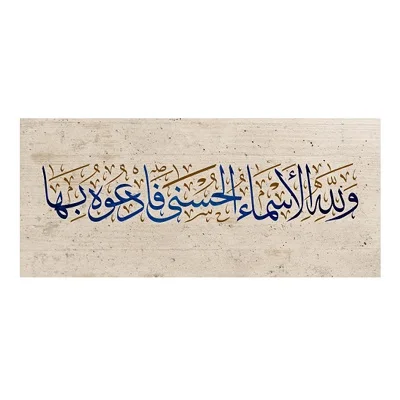 وَلِلَّهِ الْأَسْمَاءُ الْحُسْنَى فَادْعُوهُ بِهَا